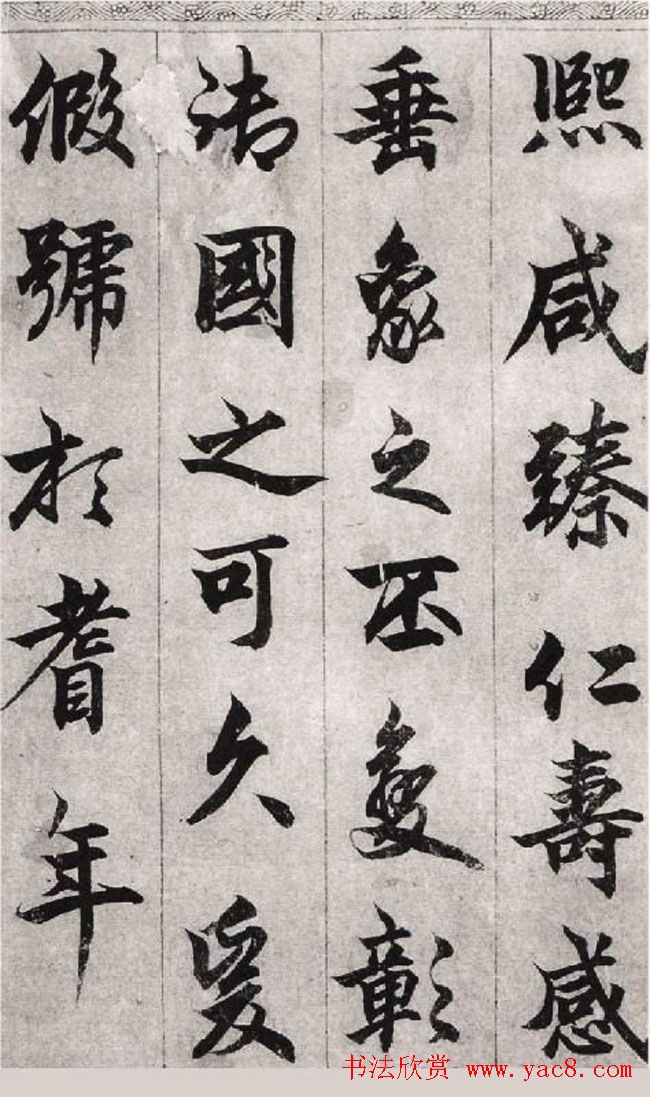 熙咸臻仁壽感
垂象之丕夐彰
御國之可久爰
假號於耆年
书法欣赏 www.yac8.com